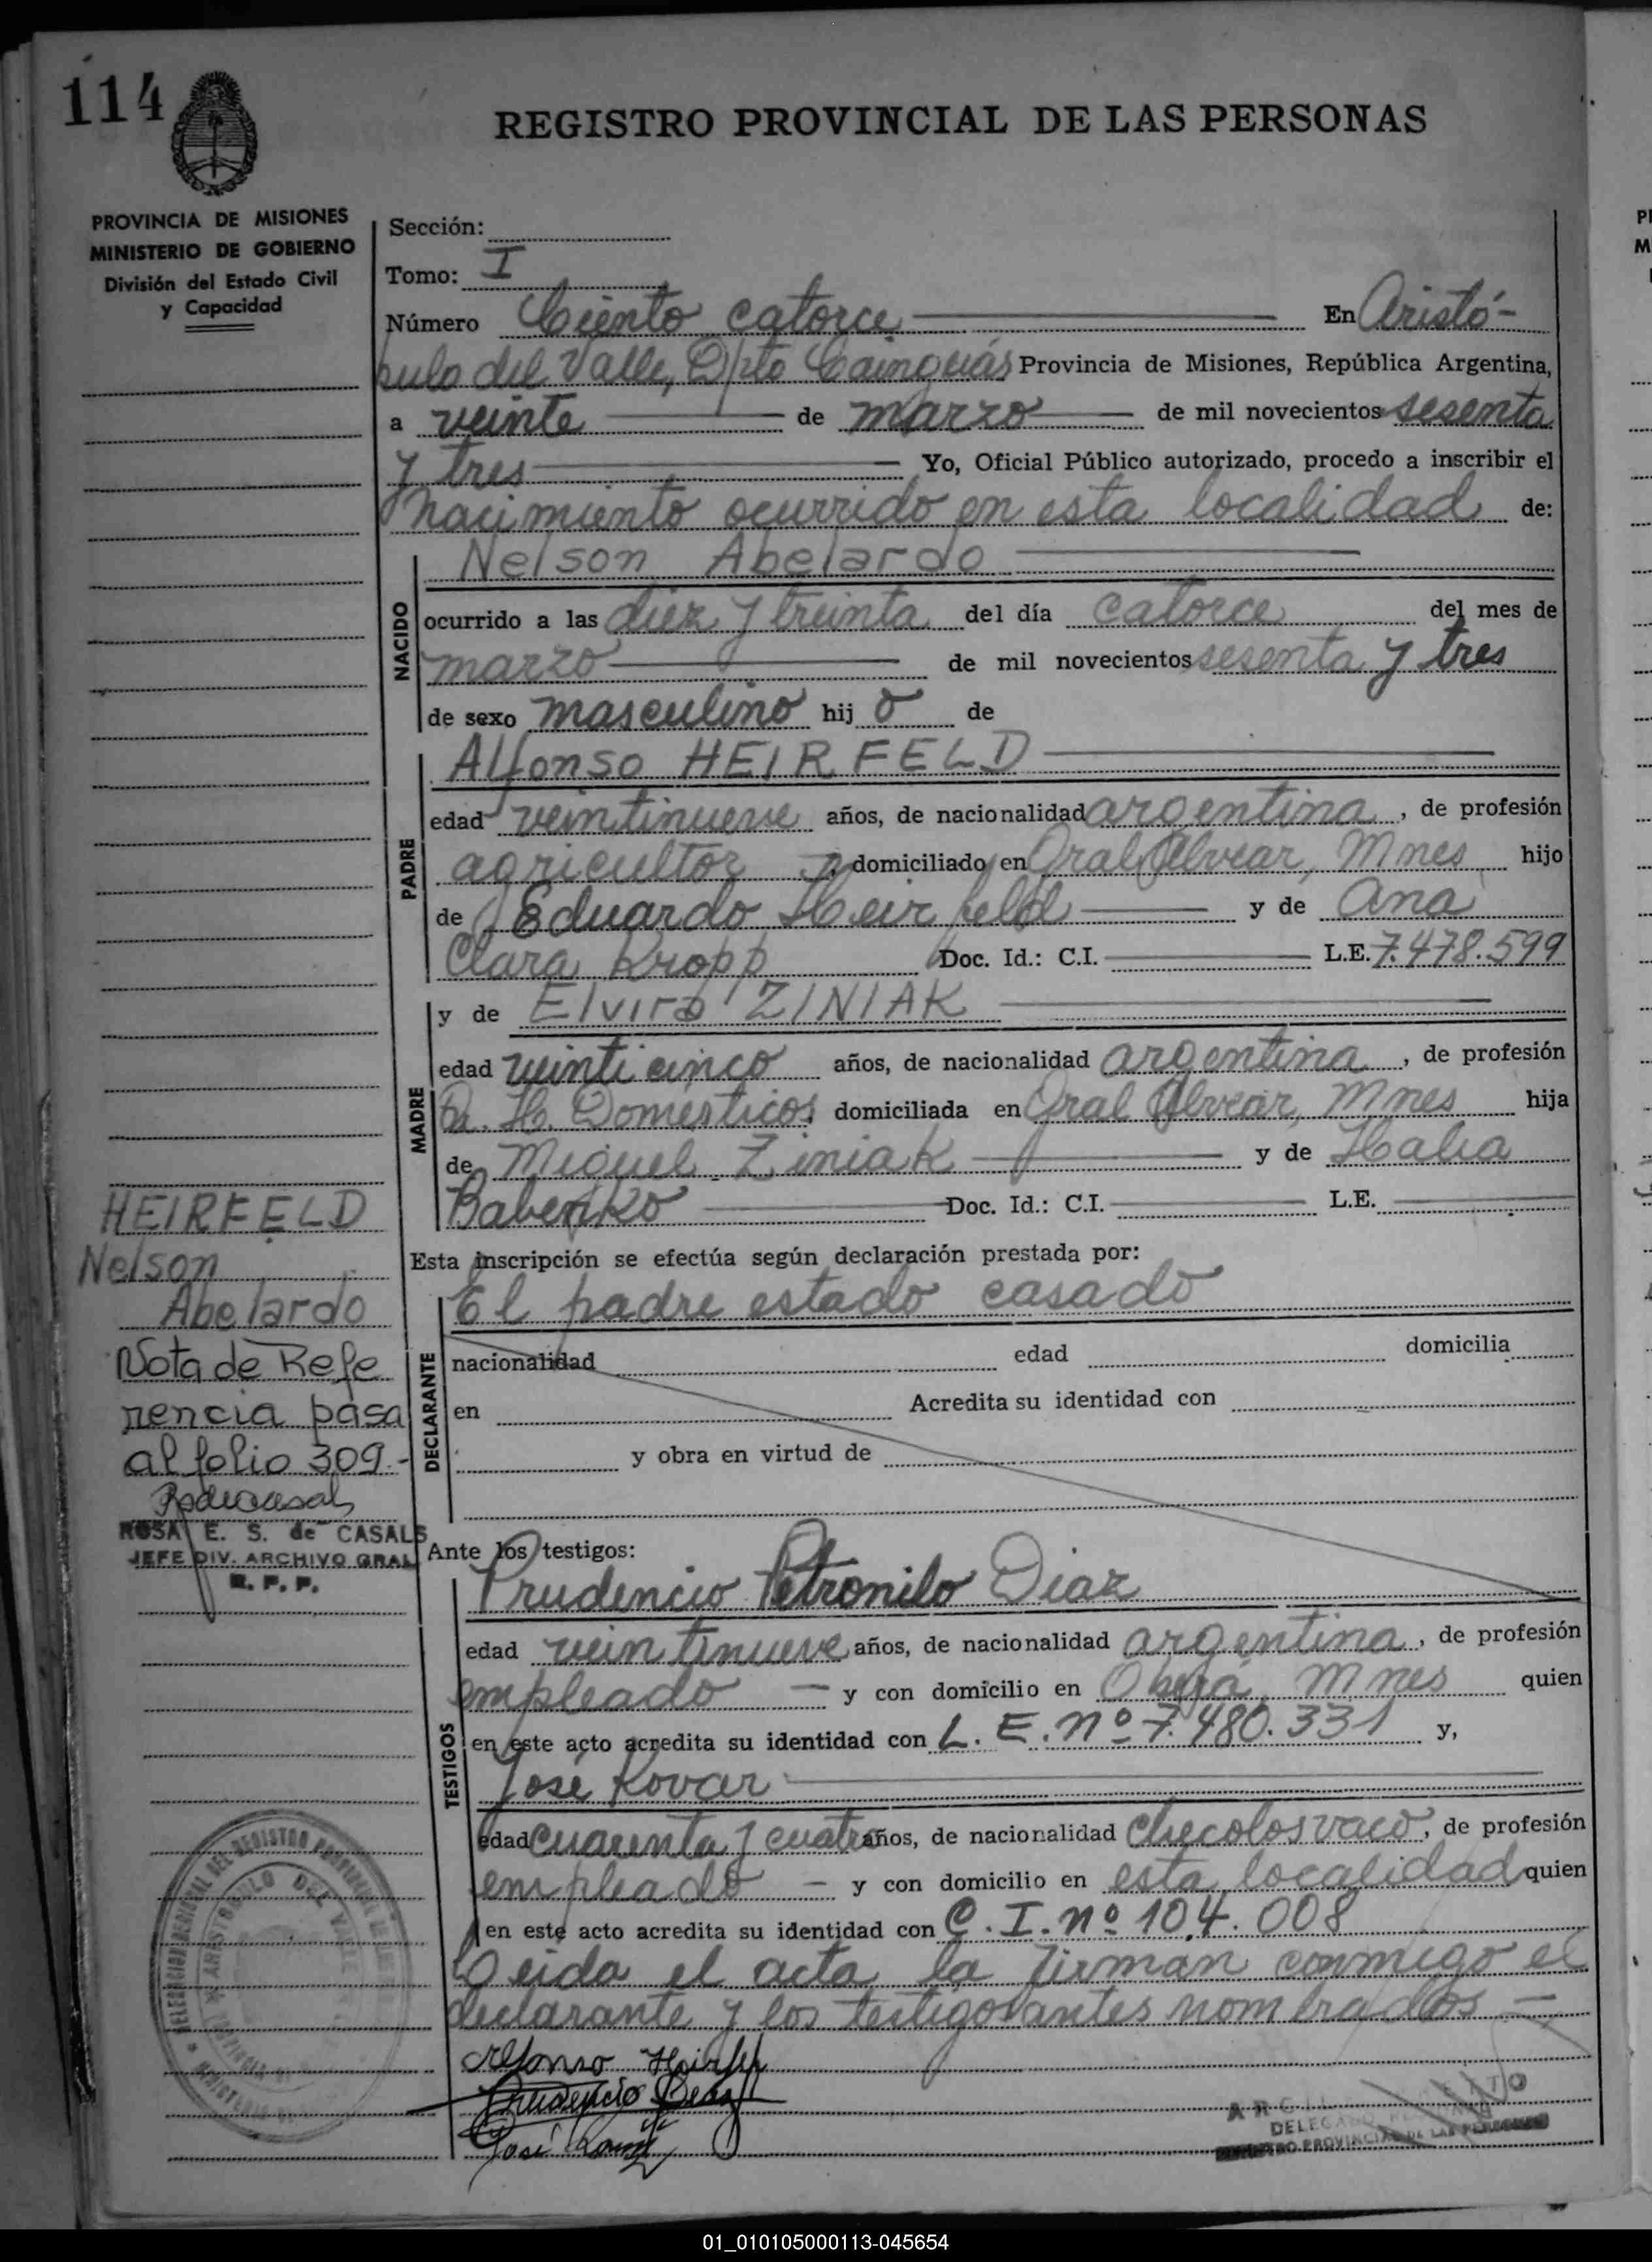 114
REGISTRO PROVINCIAL DE LAS PERSONAS
PROVINCIA DE MISIONES
MINISTERIO DE GOBIERNO
División del Estado Civil
y Capacidad
Sección:
Tomo: I
Número Ciento catorce En Aristó-
bulo del Valle, Dpto Cainguás Provincia de Misiones, República Argentina,
a veinte de marzo de mil novecientos sesenta
y tres Yo, Oficial Público autorizado, procedo a inscribir el
nacimiento ocurrido en esta localidad de:
NACIDO
Nelson Abelardo
ocurrido a las diez y treinta del día catorce del mes de
marzo de mil novecientos sesenta y tres
de sexo masculino hij o de
PADRE
Alfonso HEIRFELD
edad veintinueve años, de nacionalidad argentina, de profesión
agricultor domiciliado en Gral Alvear, Mnes hijo
de Eduardo Heirfeld y de Ana
Clara Kropp Doc. Id.: C.I. L.E. 7.478.599
MADRE
y de Elvira ZINIAK
edad veinticinco años, de nacionalidad argentina, de profesión
Q. H. Domésticos domiciliada en Gral Alvear, Mnes hija
de Miguel Ziniak y de Halia
Babenko Doc. Id.: C.I. L.E.
HEIRFELD
Nelson
Abelardo
Nota de Refe
rencia pasa
al folio 309.-
ROSA E. S. de CASALS
JEFE DIV. ARCHIVO GRAL
R. P. P.
Esta inscripción se efectúa según declaración prestada por:
DECLARANTE
El padre estado casado
nacionalidad edad domicilia
en Acredita su identidad con
y obra en virtud de
Ante los testigos:
TESTIGOS
Prudencio Petronilo Diaz
edad veintinueve años, de nacionalidad argentina, de profesión
empleado y con domicilio en Oberá, Mnes quien
en este acto acredita su identidad con L. E. Nº 7.480.331 y,
José Kovar
edad cuarenta y cuatro años, de nacionalidad Checolosvaco, de profesión
empleado y con domicilio en esta localidad quien
en este acto acredita su identidad con C. I. nº 104.008
Leida el acta la firman conmigo el
declarante y los testigos antes nombrados
Alfonso
Prudencio Diaz
José
DEL VALLE
REGISTRO PROVINCIAL DE LAS PERSONAS
01_010105000113-045654